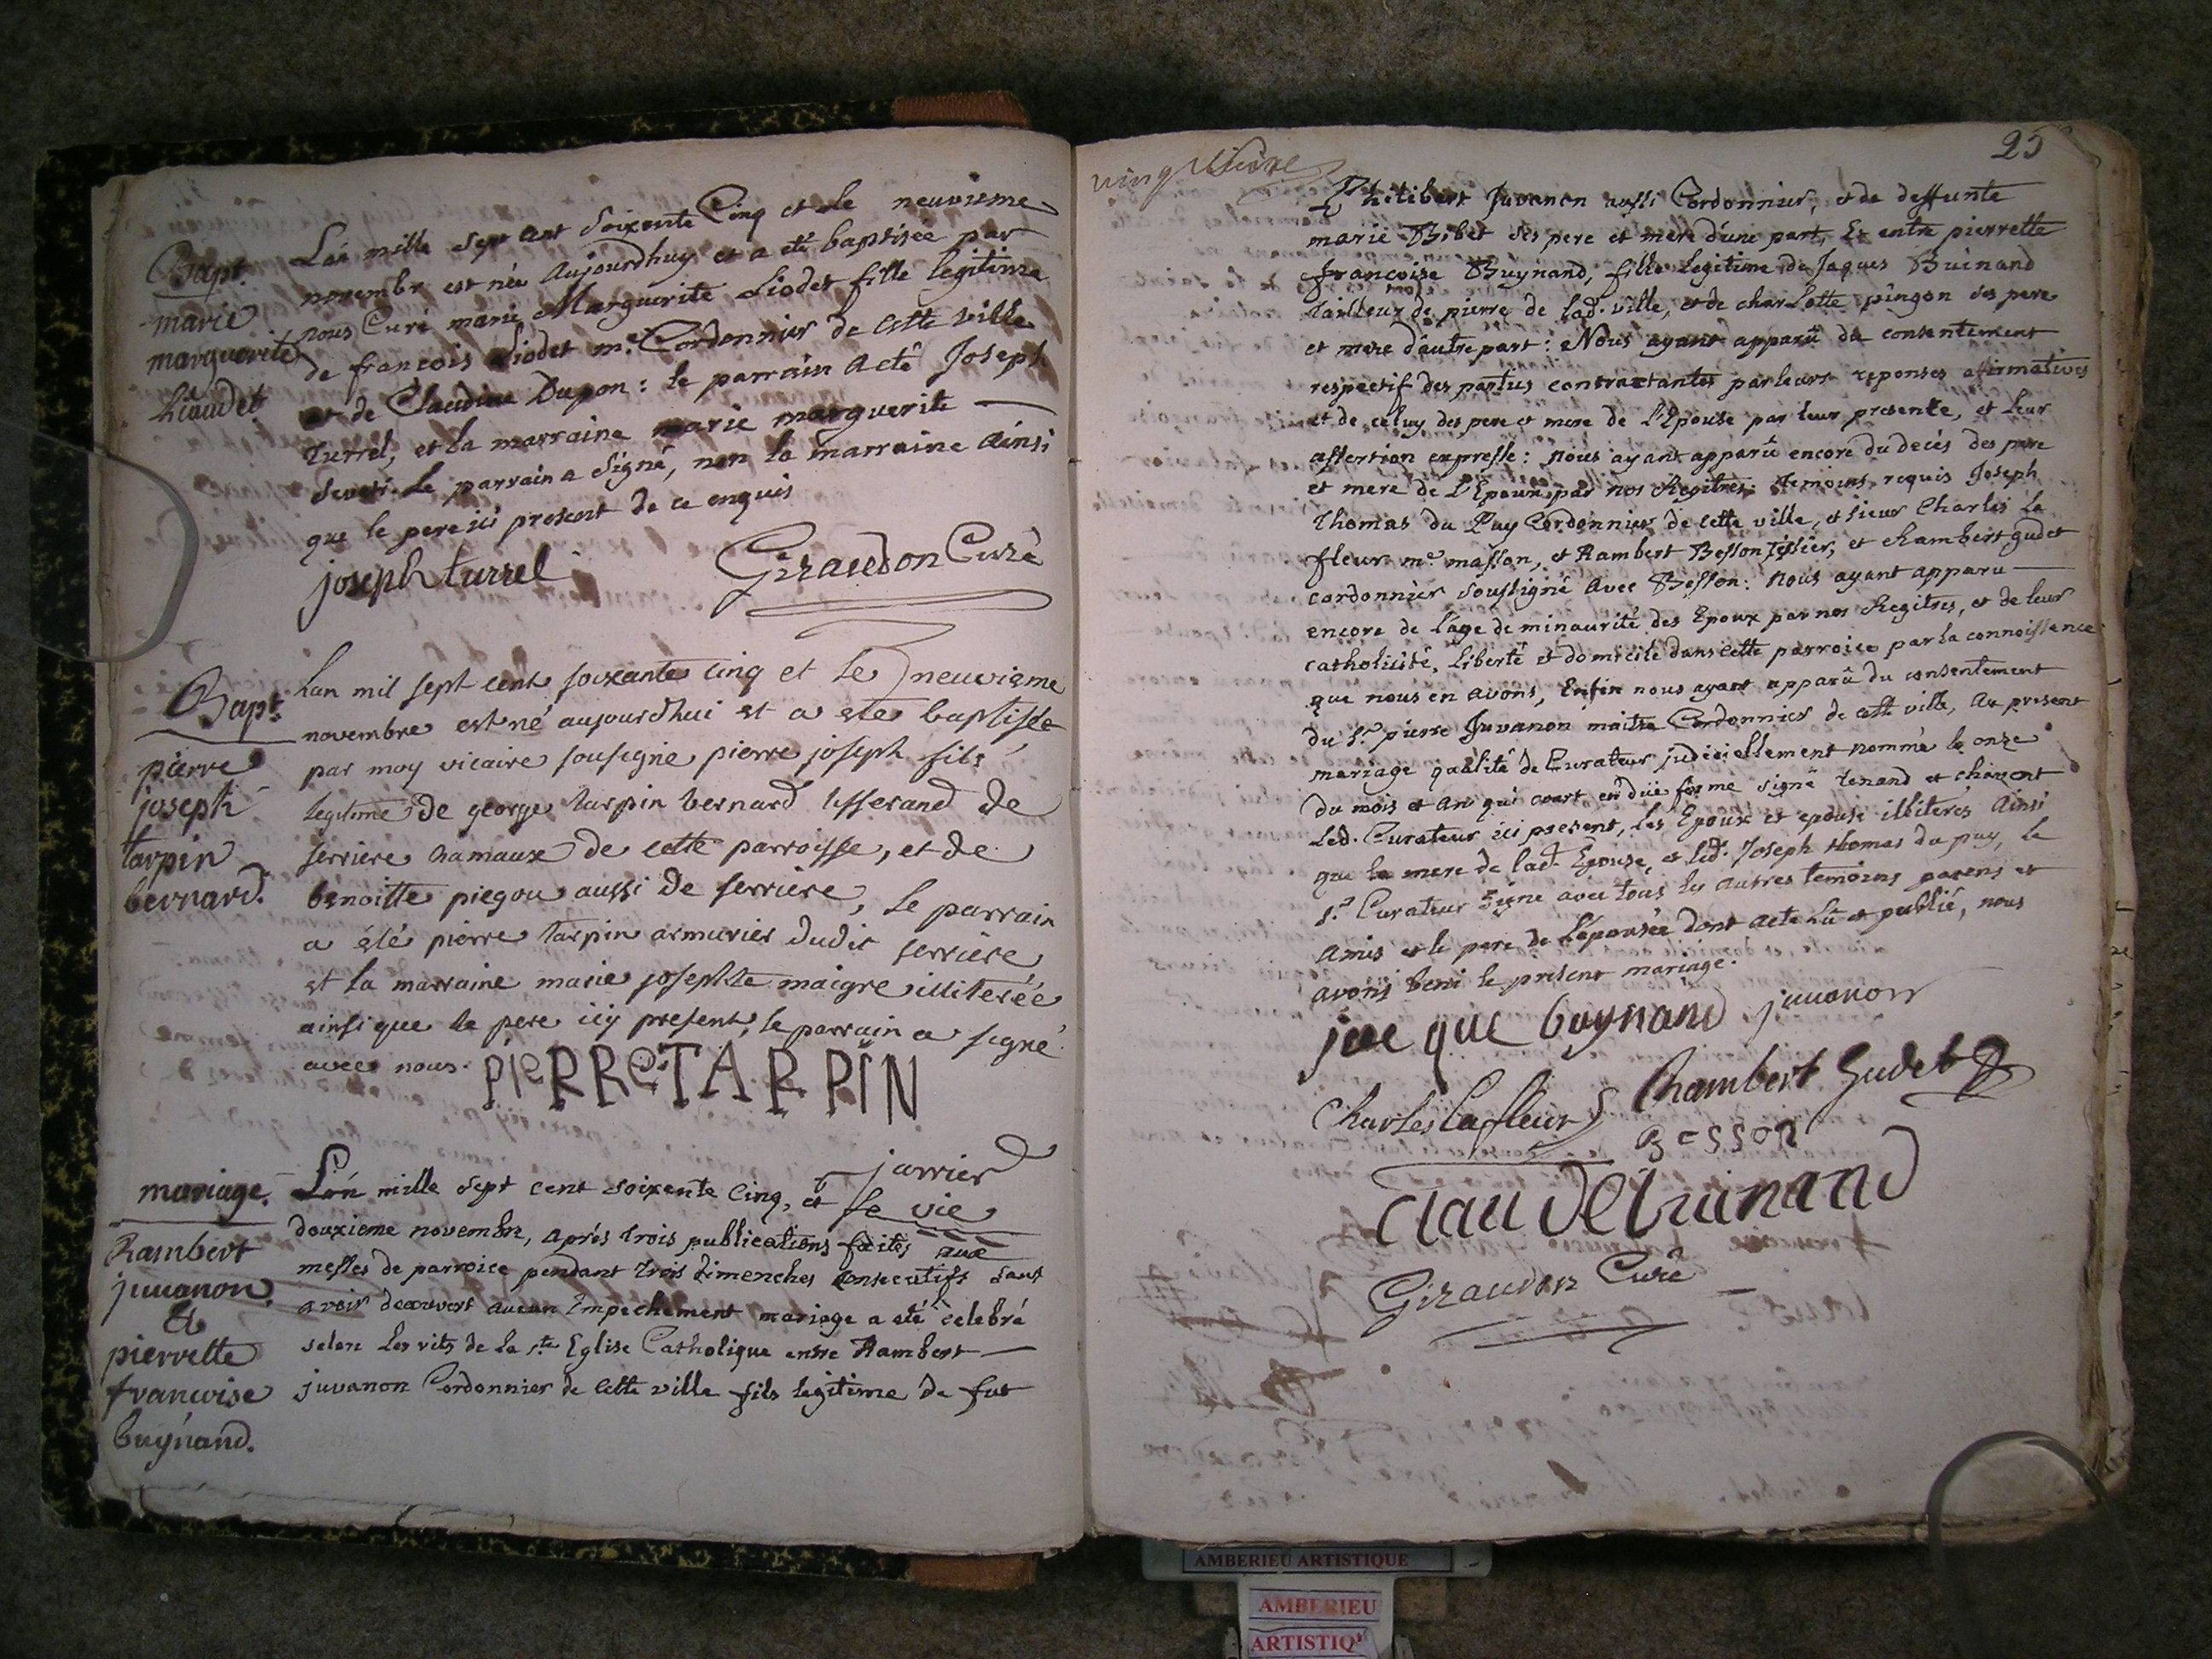 Bapt.
marie
marguerite
liaudet
L'an mille sept cent soixente Cinq et le neuvieme
novembr est née aujourdhuy et a été baptisée par
nous Curé marie Marguerite Liodet fille legitime
de francois Liodet me. Cordonnier de cette ville
et de Claudine Dupon: le parrain a eté Joseph
turrel, et la marraine marie marguerite
le parrain a signé, non la marraine ainsi
que le pere ici present de ce enquis
joseph turrel Giraudon Curé
Bapt.
pierre
joseph
tarpin
bernard.
lan mil sept cent soixante cinq et le neuvieme
novembre est né aujourdhui et a été baptisée
par moy vicaire sousigné pierre joseph fils
legitime de george tarpin bernard tisserand de
serriere hamaux de cette parroisse, et de
benoitte piegou aussi de serriere, le parrain
a été pierre tarpin armurier dudit serriere
et la marraine marie josephte maigre illiterée
ainsi que le pere icy present, le parrain a signé
avec nous. PIERRE TARPIN
jarrier
vie
mariage.
Rambert
juvanon
&
pierrette
francoise
buynand.
L'an mille sept cent soixente Cinq, et le
douxieme novembre, après trois publications faites aux
messes de parroice pendant trois dimenches consecutifs sans
avoir decouvert aucun Empechement mariage a eté celebré
selon les rits de la ste. Eglise Catholique entre Rambert
juvanon Cordonnier de cette ville fils legitime de fut
25
Philibert Juvanon aussi Cordonnier, et de deffunte
marie Bibet ses pere et mere d'une part, Et entre pierrette
francoise Buynand, fille legitime de Jaques Buinand
tailleur de pierre de lad. ville, et de charlotte pingon ses pere
et mere d'autre part: Nous ayant apparû du consentement
respectif des parties contractantes par leurs reponses afirmatives
et de celuy des pere et mere de l'Epouse par leur presente, et leur
assertion expresse: nous ayant apparû encore du decès des pere
et mere de l'Epoux par nos Regitres temoins requis Joseph
thomas du Puy Cordonnier de cette ville, et sieur Charles la
fleur me. masson, et Rambert Besson tissier, et chambert gudet
cordonnier soussigné avec Besson: nous ayant apparu
encore de l'age de minaurité des Epoux par nos Regitres, et de leur
catholicité, liberté et domicile dans cette parroice par la connoissence
que nous en avons, Enfin nous ayant apparû du consentement
du sr. pierre Juvanon maitre Cordonnier de cette ville, au present
mariage qualité de Curateur judiciellement nommé le onze
du mois et an qui court en düe forme signé tenand et
led. Curateur ici present, les Epoux et epouse illiteres ainsi
que la mere de lad. Epouse, et led. Joseph thomas du puy, le
sr. Curateur signe avec tous les autres temoins parens et
amis et le pere de l'epousée dont acte lû et publié, nous
avons beni le present mariage.
jae que buynand juvanon
Charles lafleur Chambert Gudet
BESSON
claude buinand
Giraudon Curé
AMBERIEU ARTISTIQUE
AMBERIEU
ARTISTIQ